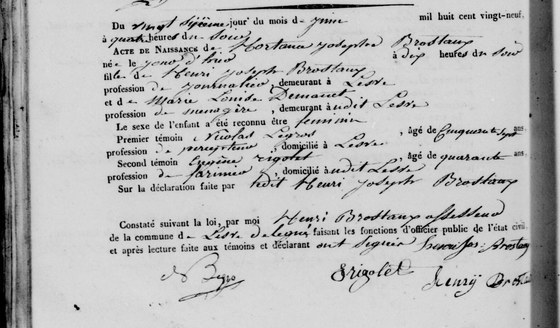 Du vingt sixième jour du mois de juin mil huit cent vingt-neuf,
à quatre heures du soir
ACTE DE NAISSANCE de Hortance Josephe Brostaux
née le jour d'hier à dix heures du soir
fille de Henri Joseph Brostaux
profession de journalier, demeurant à Lesve
et de Marie Louise
profession de menagère, demeurant à udit Lesve
Le sexe de l'enfant a été reconnu être feminin
Premier témoin Nicolas Legros, âgé de Cinquante sept ans
profession de percepteur, domicilié à Lesve
Second témoin rigolet, âgé de quarante ans,
profession de farinier, domicilié à udit Lesve
Sur la déclaration faite par ledit Henri Joseph Brostaux
Constaté suivant la loi, par moi Henri Brostaux assesseur
de la commune de Lesve faisant les fonctions d'officier public de l'état civil
et après lecture faite aux témoins et déclarant ont signér Brostaux
rigolet
henrij